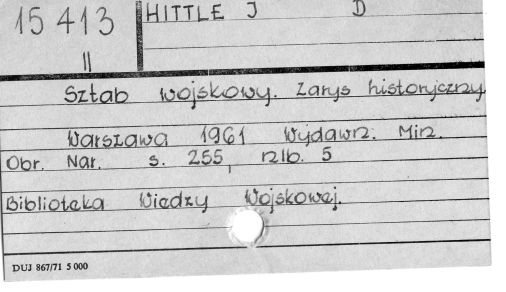 15 413 HITTLE J D
II
Sztab wojskowy. Zarys historyczny
Warszawa 1961 Wydawn. Min.
Obr. Nar. s. 255, nlb. 5
Biblioteka Wiedzy Wojskowej.
DUJ 867/71 5 000